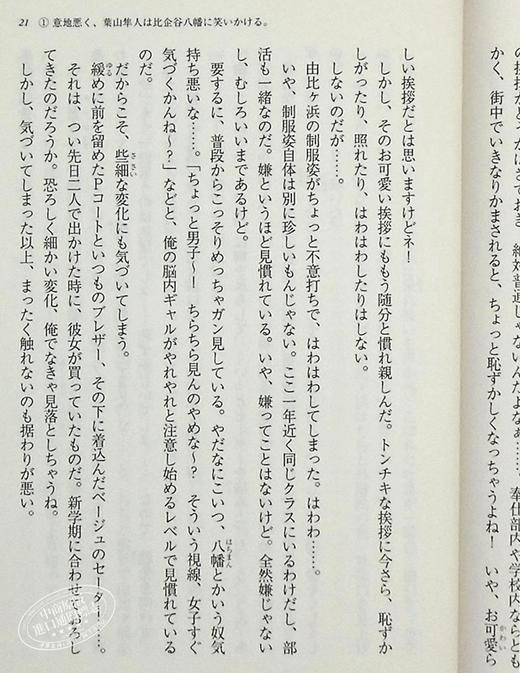 かく、街中でいきなりかまされると、ちょっと恥ずかしくなっちゃうよね！　いや、お可愛ら
かわい
21　① 意地悪く、葉山隼人は比企谷八幡に笑いかける。
しい挨拶だとは思いますけどネ！
しかし、そのお可愛い挨拶にももう随分と慣れ親しんだ。トンチキな挨拶に今さら、恥ずか
しがったり、照れたり、はわはわしたりはしない。
しないのだが……。
由比ヶ浜の制服姿がちょっと不意打ちで、はわはわしてしまった。はわわ……。
いや、制服姿自体は別に珍しいもんじゃない。ここ一年近く同じクラスにいるわけだし、部
活も一緒なのだ。嫌というほど見慣れている。いや、嫌ってことはないけど。全然嫌じゃない
し、むしろいいまであるけど。
要するに、普段からこっそりめっちゃガン見している。やだなにこいつ、八幡とかいう奴気
はちまん
持ち悪いな……。「ちょっと男子ー！　ちらちら見んのやめな～？　そういう視線、女子すぐ
気づくかんね～？」などと、俺の脳内ギャルがやれやれと注意し始めるレベルで見慣れている
のだ。
だからこそ、些細な変化にも気づいてしまう。
ささい
緩めに前を留めたＰコートといつものブレザー、その下に着込んだベージュのセーター……。
ゆる
それは、つい先日二人で出かけた時に、彼女が買っていたものだ。新学期に合わせておろし
てきたのだろうか。恐ろしく細かい変化、俺でなきゃ見落としちゃうね。
しかし、気づいてしまった以上、まったく触れないのも据わりが悪い。